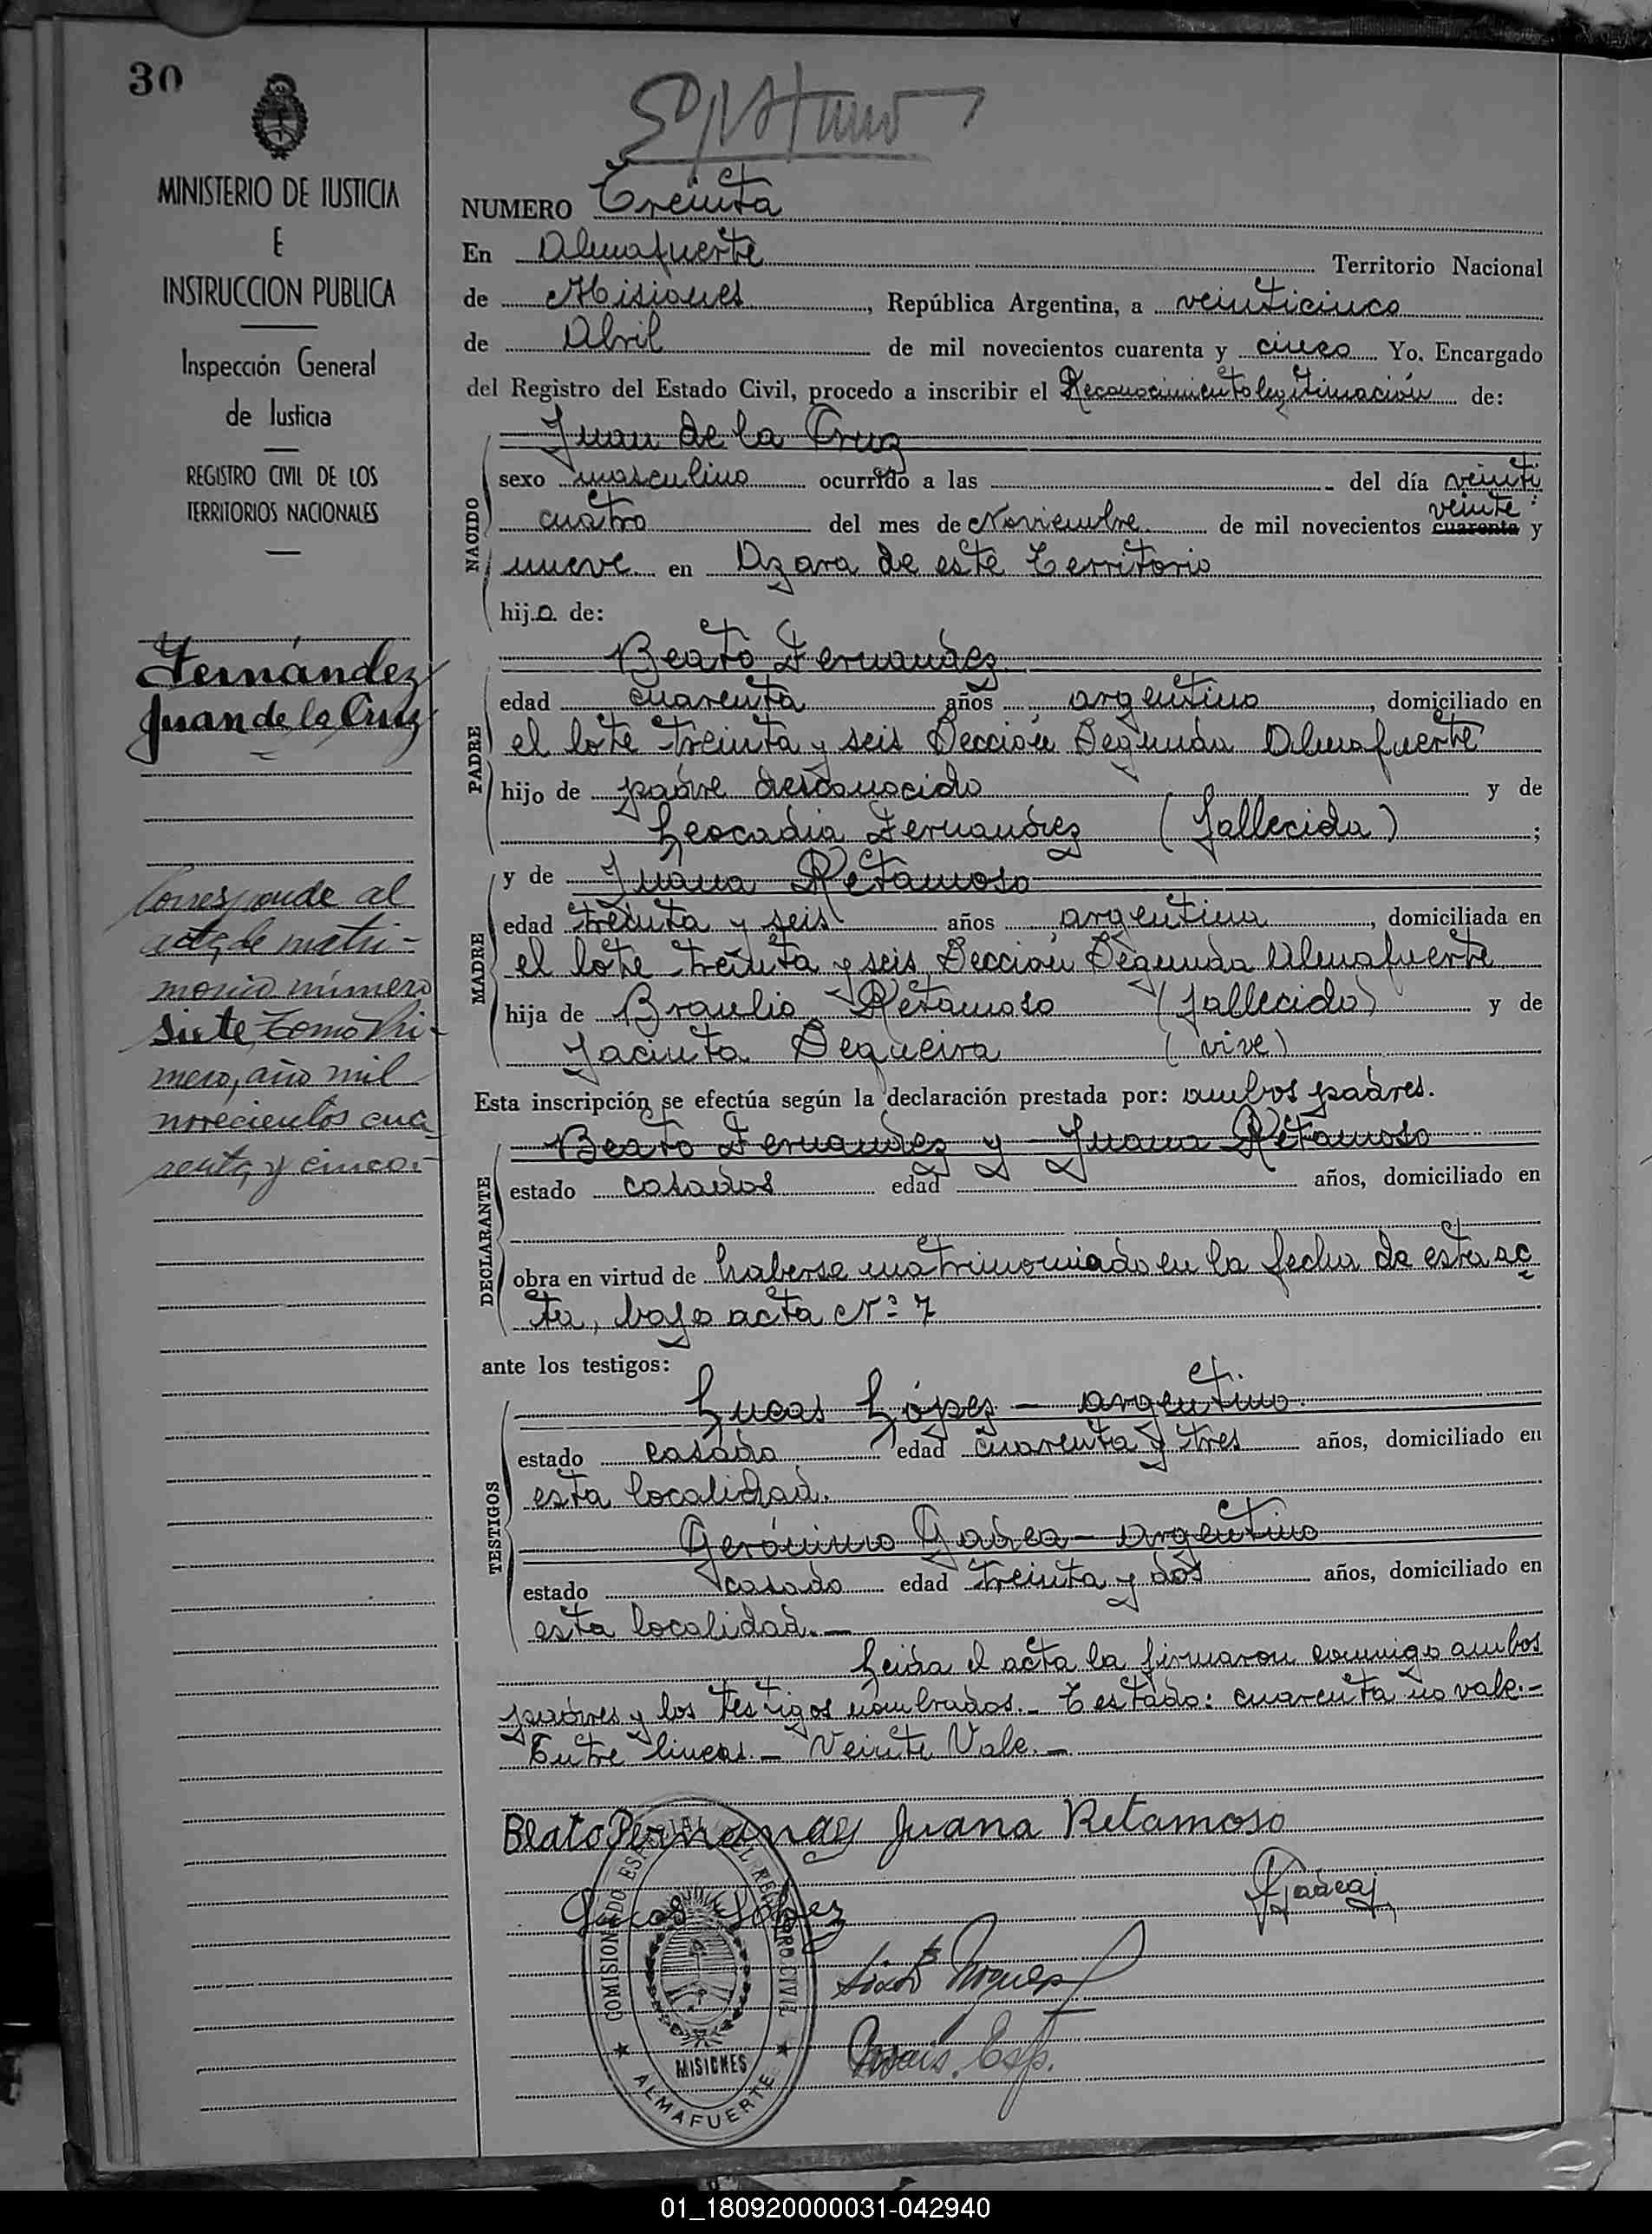 30
MINISTERIO DE JUSTICIA
E
INSTRUCCION PUBLICA
Inspección General
de Justicia
REGISTRO CIVIL DE LOS
TERRITORIOS NACIONALES
Fernández
Juan de la Cruz
Corresponde al
acta de matri-
monio número
siete, tomo Pri-
mero, año mil
novecientos cua
renta y cinco.-
NUMERO Treinta
En Almafuerte Territorio Nacional
de Misiones, República Argentina, a veinticinco
de Abril de mil novecientos cuarenta y cinco Yo, Encargado
del Registro del Estado Civil, procedo a inscribir el Reconocimiento legitimación de:
Juan de la Cruz
NACIDO
sexo masculino ocurrido a las - del día veinti
veinte
cuatro del mes de Noviembre de mil novecientos cuarenta y
nueve en Azara de este Territorio
hijo de:
Beato Fernandez
PADRE
edad cuarenta años argentino, domiciliado en
el lote treinta y seis Sección Segunda Almafuerte
hijo de padre desconocido y de
Leocadia Fernandez (fallecida);
y de Juana Retamoso
MADRE
edad treinta y seis años argentina, domiciliada en
el lote treinta y seis Sección Segunda Almafuerte
hija de Braulio Retamoso (fallecido) y de
Jacinta Sequeira (vive)
Esta inscripción se efectúa según la declaración prestada por: ambos padres.
Beato Fernandez y Juana Retamoso
DECLARANTE
estado casados edad años, domiciliado en
obra en virtud de haberse matrimoniado en la fecha de esta ac
ta, bajo acta Nº 7
ante los testigos:
Lucas López - argentino.
TESTIGOS
estado casado edad cuarenta y tres años, domiciliado en
esta localidad.
Gerónimo Gadea - argentino
estado casado edad treinta y dos años, domiciliado en
esta localidad.-
Leida el acta la firmaron conmigo ambos
padres y los testigos nombrados.- Testado: cuarenta no vale.-
Entre lineas.- Veinte Vale.-
Beato Fernandez Juana Retamoso
Lucas López
COMISIONADO ESPECIAL DEL REGISTRO CIVIL
MISIONES
★ ALMAFUERTE ★
01_180920000031-042940